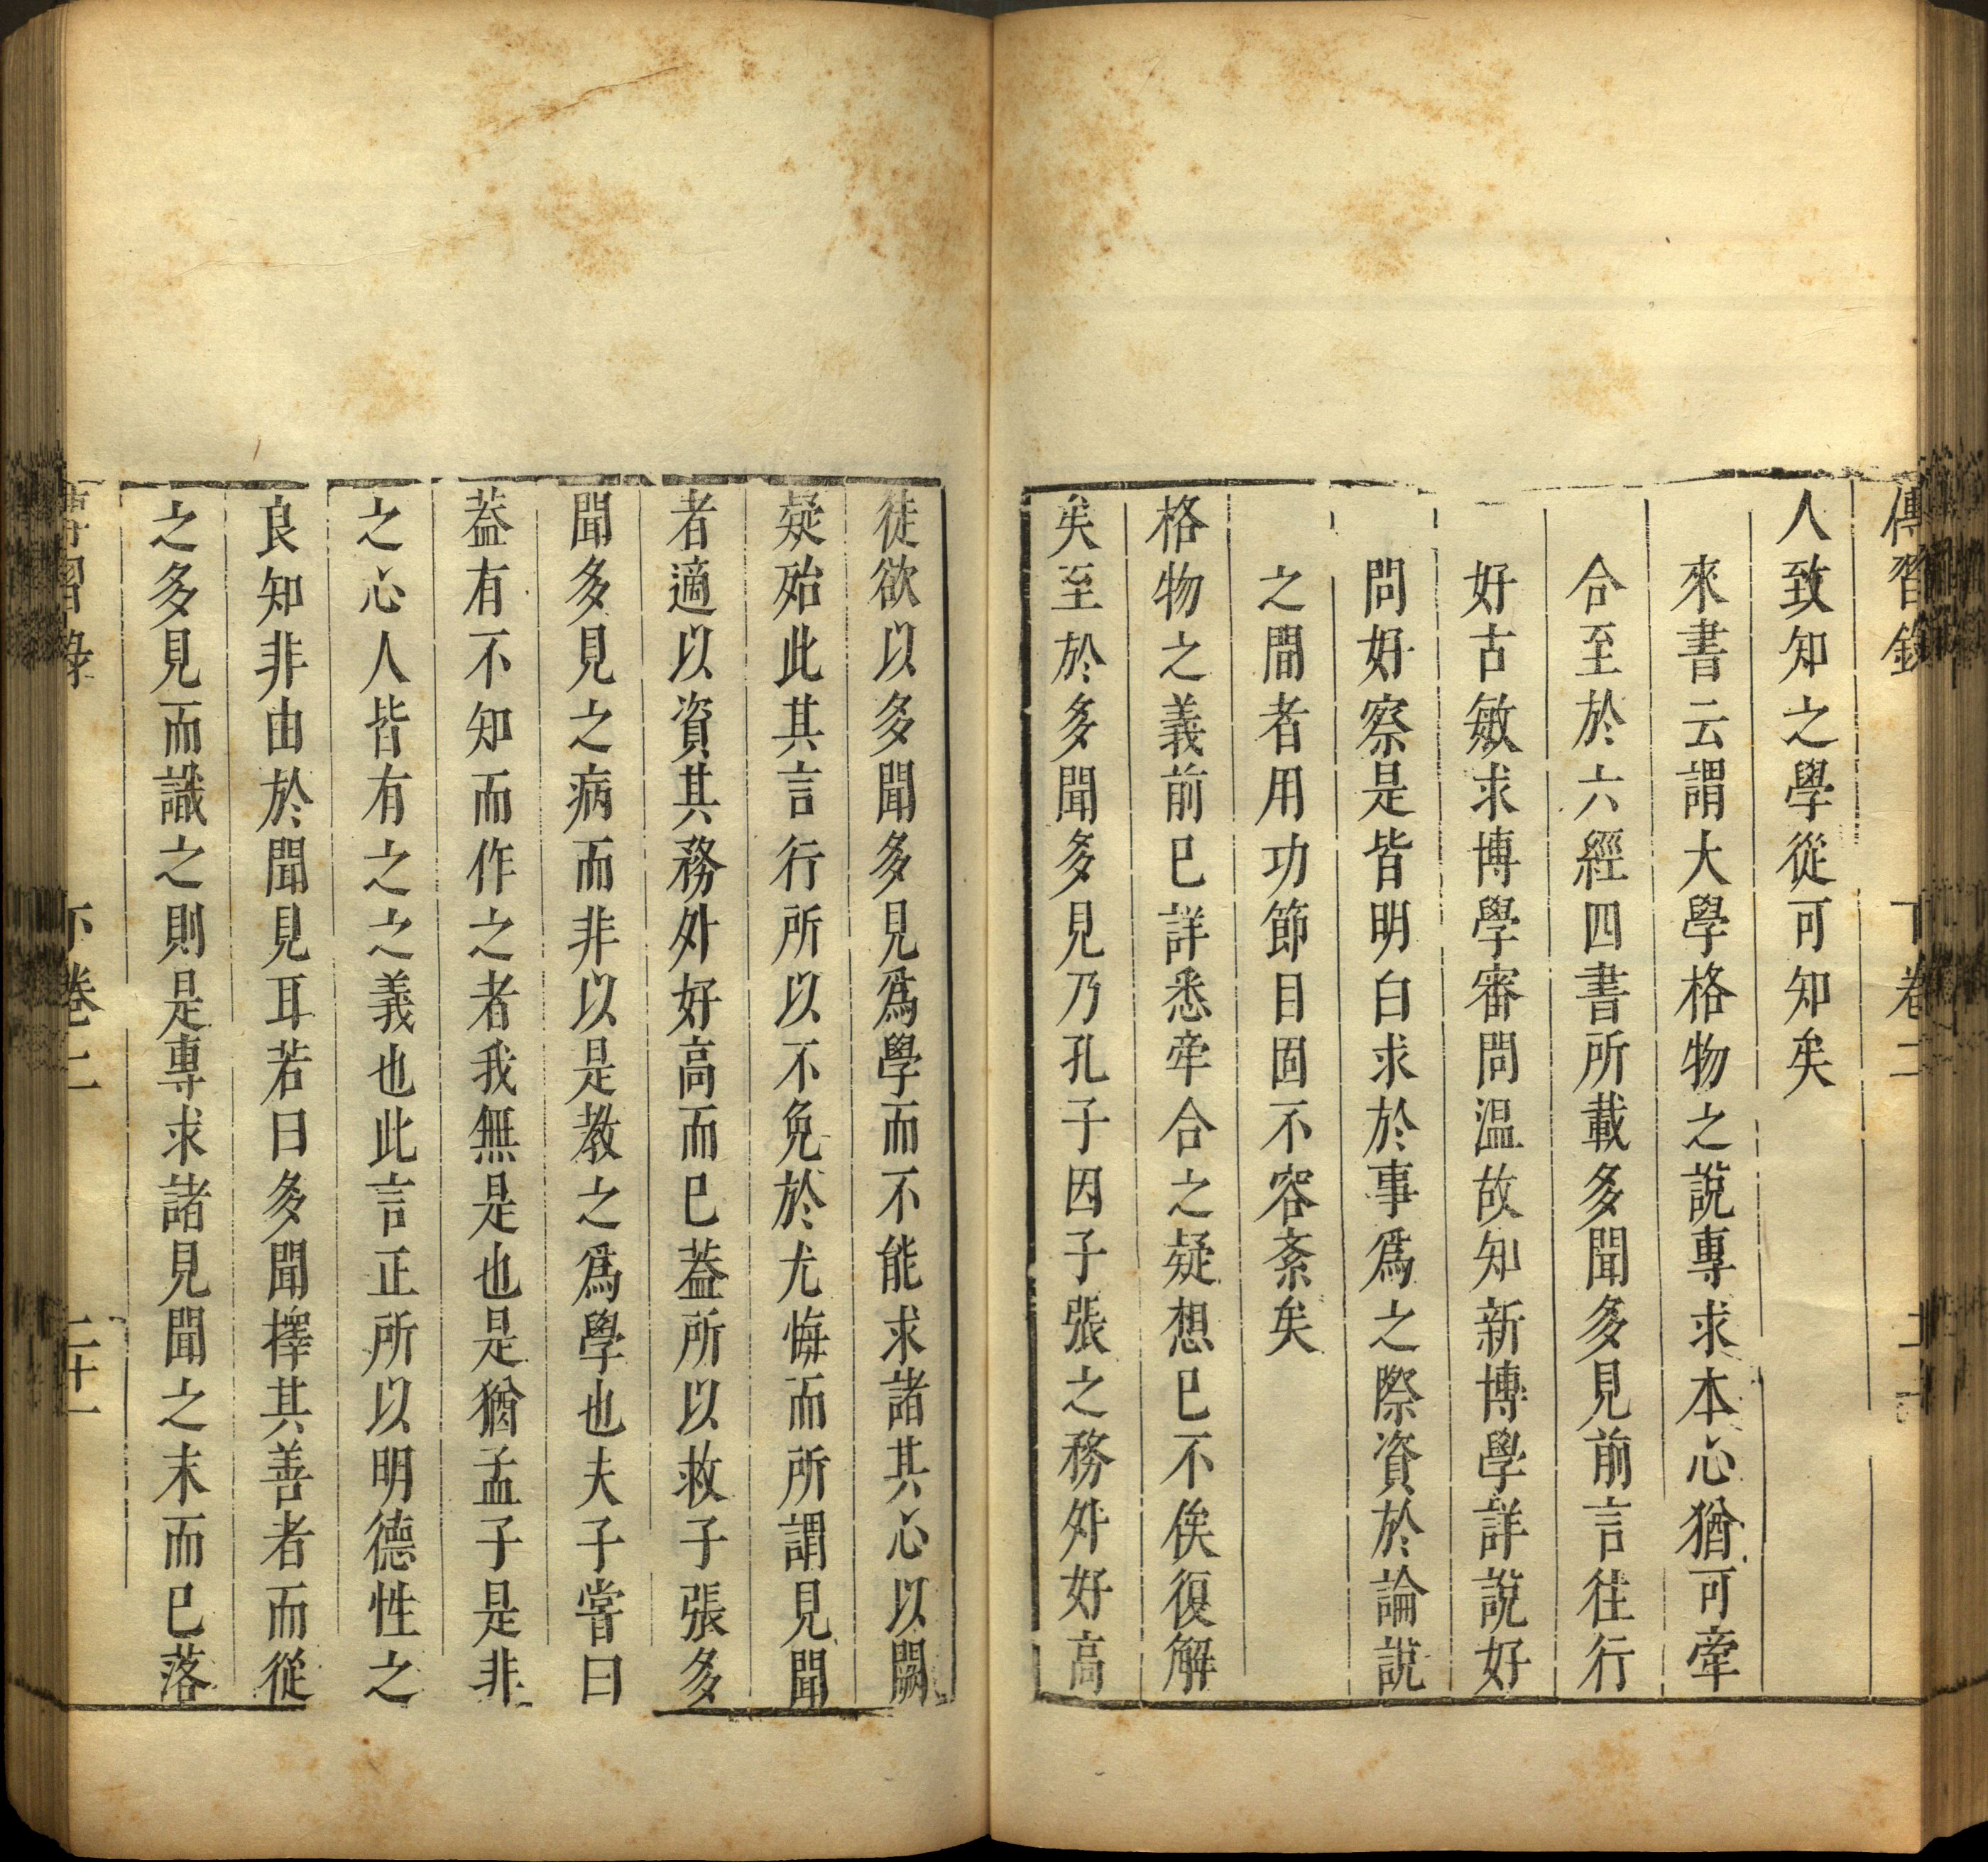 傳習錄 下卷二 二十
人致知之學從可知矣
來書云謂大學格物之說專求本心猶可牽
合至於六經四書所載多聞多見前言往行
好古敏求博學審問温故知新博學詳說好
問好察是皆明白求於事爲之際資於論說
之間者用功節目固不容紊矣
格物之義前已詳悉牽合之疑想已不俟復解
矣至於多聞多見乃孔子因子張之務外好高
徒欲以多聞多見爲學而不能求諸其心以闕
疑殆此其言行所以不免於尤悔而所謂見聞
者適以資其務外好高而已葢所以救子張多
聞多見之病而非以是教之爲學也夫子嘗曰
葢有不知而作之者我無是也是猶孟子是非
之心人皆有之之義也此言正所以明德性之
良知非由於聞見耳若曰多聞擇其善者而從
之多見而識之則是專求諸見聞之末而已落
傳習錄 下卷二 二十一